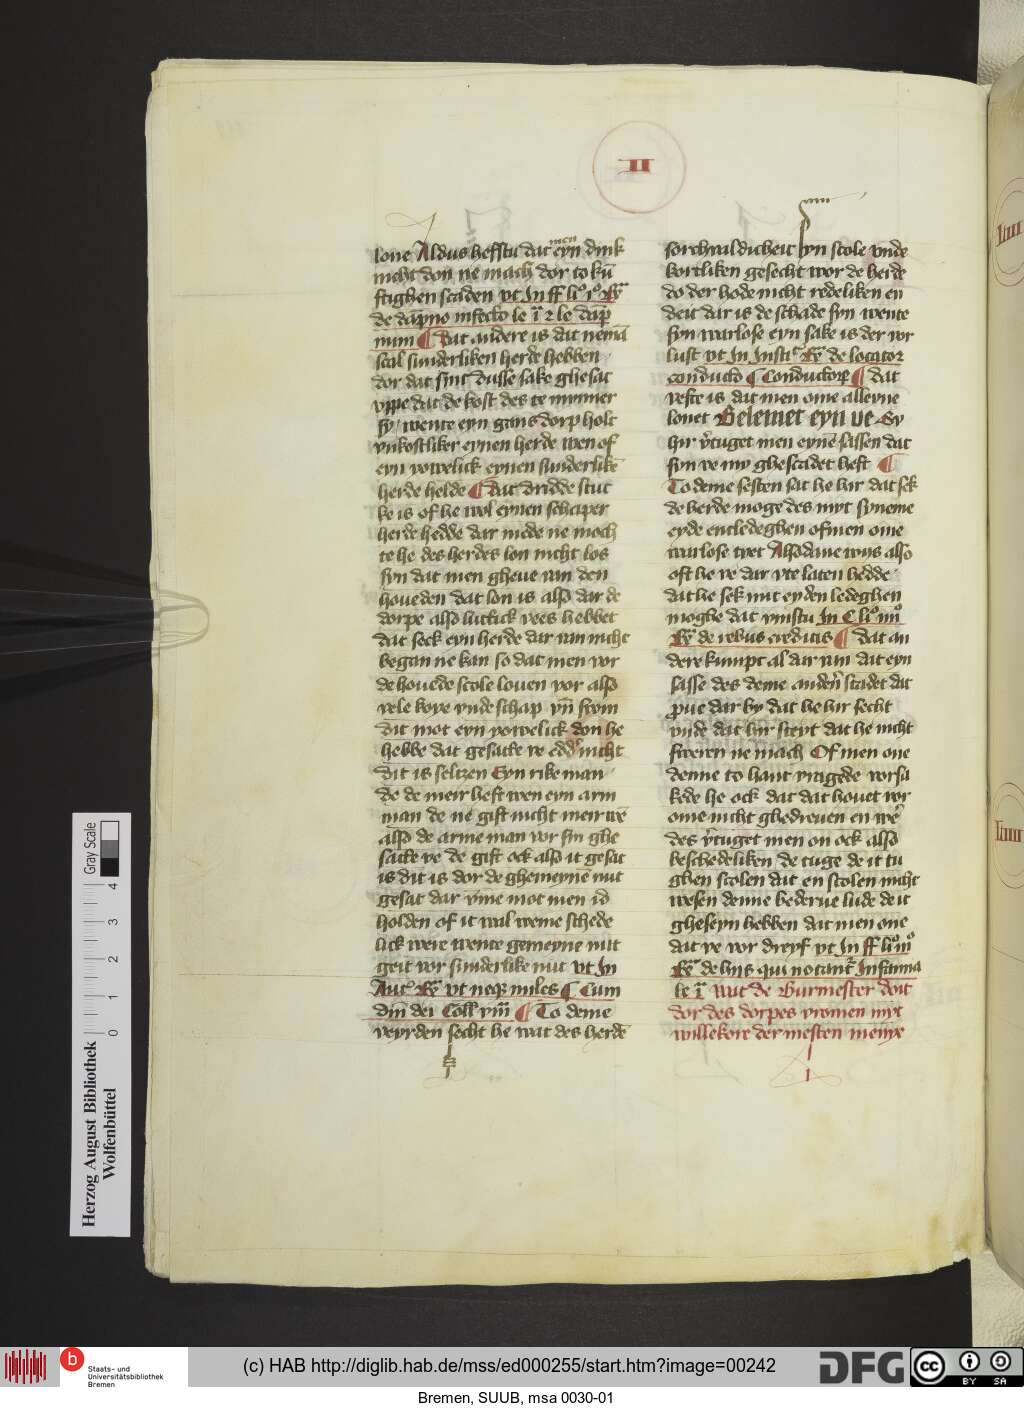 II
lone Aldus hefstu dat men eyn dink
nicht don ne mach dor to kū
ftighen scaden vt In ff li° i° Rx̄
de dāpno infecto le ī 2 le dāp
num ¶ Dat andere is dat nemā
scal sunderliken herde hebben
dor dat sint dusse sake ghesat
vppe dat de kost des te mynner
sy / wente eyn gans dorp holt
vnkostliker eynen herde wen of
eyn yowelick eynen sunderlikē
herde helde ¶ dat dridde stuc
ke is of he wol eynen schaper
herde hedde dar mede ne moch
te he des herdes lon nicht los
syn dat men gheue van den
houeden dat lon is also dar de
dorpe also luttick vees hebbet
dat seck eyn herde dar van nicht
began ne kan so dat men vor
de houede scole louen vor also
vele kove vnde schap vn̄ swin
dat mot eyn yowelick don he
hebbe dat gesatte ve edd' nicht
dit is seltzen Eyn rike man
de de meir heft wen eyn arm
man de ne gift nicht meir wē
also de arme man vor sin ghe
satte ve de gift ock also it gesat
is dit is dor de ghemeyne nut
gesat dar v̄me mot men id
holden of it wal weme schede
lick were wente gemeyne nut
geit vor sunderlike nut vt In
Aut' Rx̄ vt neqz miles ¶ Cum
dn̄i dei Coll' viii ¶ To deme
veyrden secht he wat des herdē
sorchvaldicheit syn scole vnde
kortliken gesecht wor de herde
do der hode nicht redeliken en
deit dar is de schade syn wente
syn warlose eyn sake is der vor
lust vt In Insti' Rx̄ de locator
conducto ¶ Conductor ¶ dat
veste is dat men ome alleyne
louet Belemet eyn ve Sy
hir v'tuget men eynē sassen dat
syn ve my ghescadet heft ¶
To deme sesten sat he hir dat sek
de herde moge des myt syneme
eyde entledeghen of men ome
warlose tyet Alsodane wys also
oft he ve dar vte laten hedde
dat he sek mit eyden ledeghen
moghe dat vinstu In C li° iiii°
Rx̄ de rebus creditis ¶ dat an
dere kumpt al dar van dat eyn
sasse des deme andern̄ scadet dat
prue dar by dat he hir secht
vnde dat hir steyt dat he nicht
sweren ne mach Of men one
denne to hant vrugede vorsa
kede he ock dat dat houet vor
ome nicht ghedreuen en wē'
des v'tuget men on ock also
beschedeliken de tuge de it tu
ghen scolen dat en scolen nicht
wesen denne bederue lude de it
gheseyn hebben dat men one
dat ve vor dreyf vt In ff li° iii°
Rx̄ de hiis qui notant' Infamia
le ī Wat de Burmester doit
dor des dorpes vromen myt
willekore der mesten menye
Herzog August Bibliothek
Wolfenbüttel
0 1 2 3 4
Gray Scale
b
Staats- und
Universitätsbibliothek
Bremen
(c) HAB http://diglib.hab.de/mss/ed000255/start.htm?image=00242
DFG
cc BY SA
Bremen, SUUB, msa 0030-01